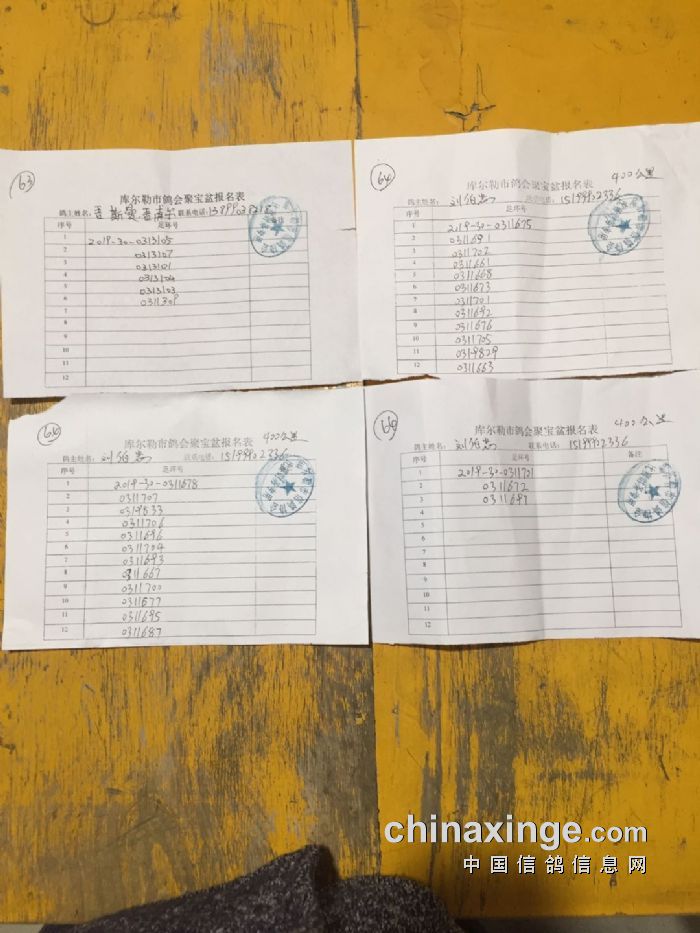 63
库尔勒市鸽会聚宝盆报名表
鸽主姓名: 联系电话:
序号 足环号
1 2019-30-0313105
2 0313107
3 0313101
4 0313104
5 0313103
6 0311309
7
8
9
10
11
12
64
库尔勒市鸽会聚宝盆报名表 400公里
鸽主姓名: 联系电话: 15199902336
序号 足环号
1 2019-30-0311675
2 0311691
3 0311702
4 0311661
5 0311668
6 0311673
7 0311701
8 0311692
9 0311676
10 0311705
11 0319829
12 0311663
库尔勒市鸽会聚宝盆报名表 400公里
鸽主姓名: 联系电话: 15199902336
序号 足环号
1 2019-30-0311678
2 0311707
3 0319533
4 0311706
5 0311696
6 0311704
7 0311693
8 0311667
9 0311700
10 0311677
11 0311695
12 0311687
库尔勒市鸽会聚宝盆报名表 400公里
鸽主姓名: 联系电话: 15199902336
序号 足环号 备注
1 2019-30-0311701
2 0311672
3 0311697
4
5
6
7
8
9
10
11
12
chinaxinge.com
中国信鸽信息网